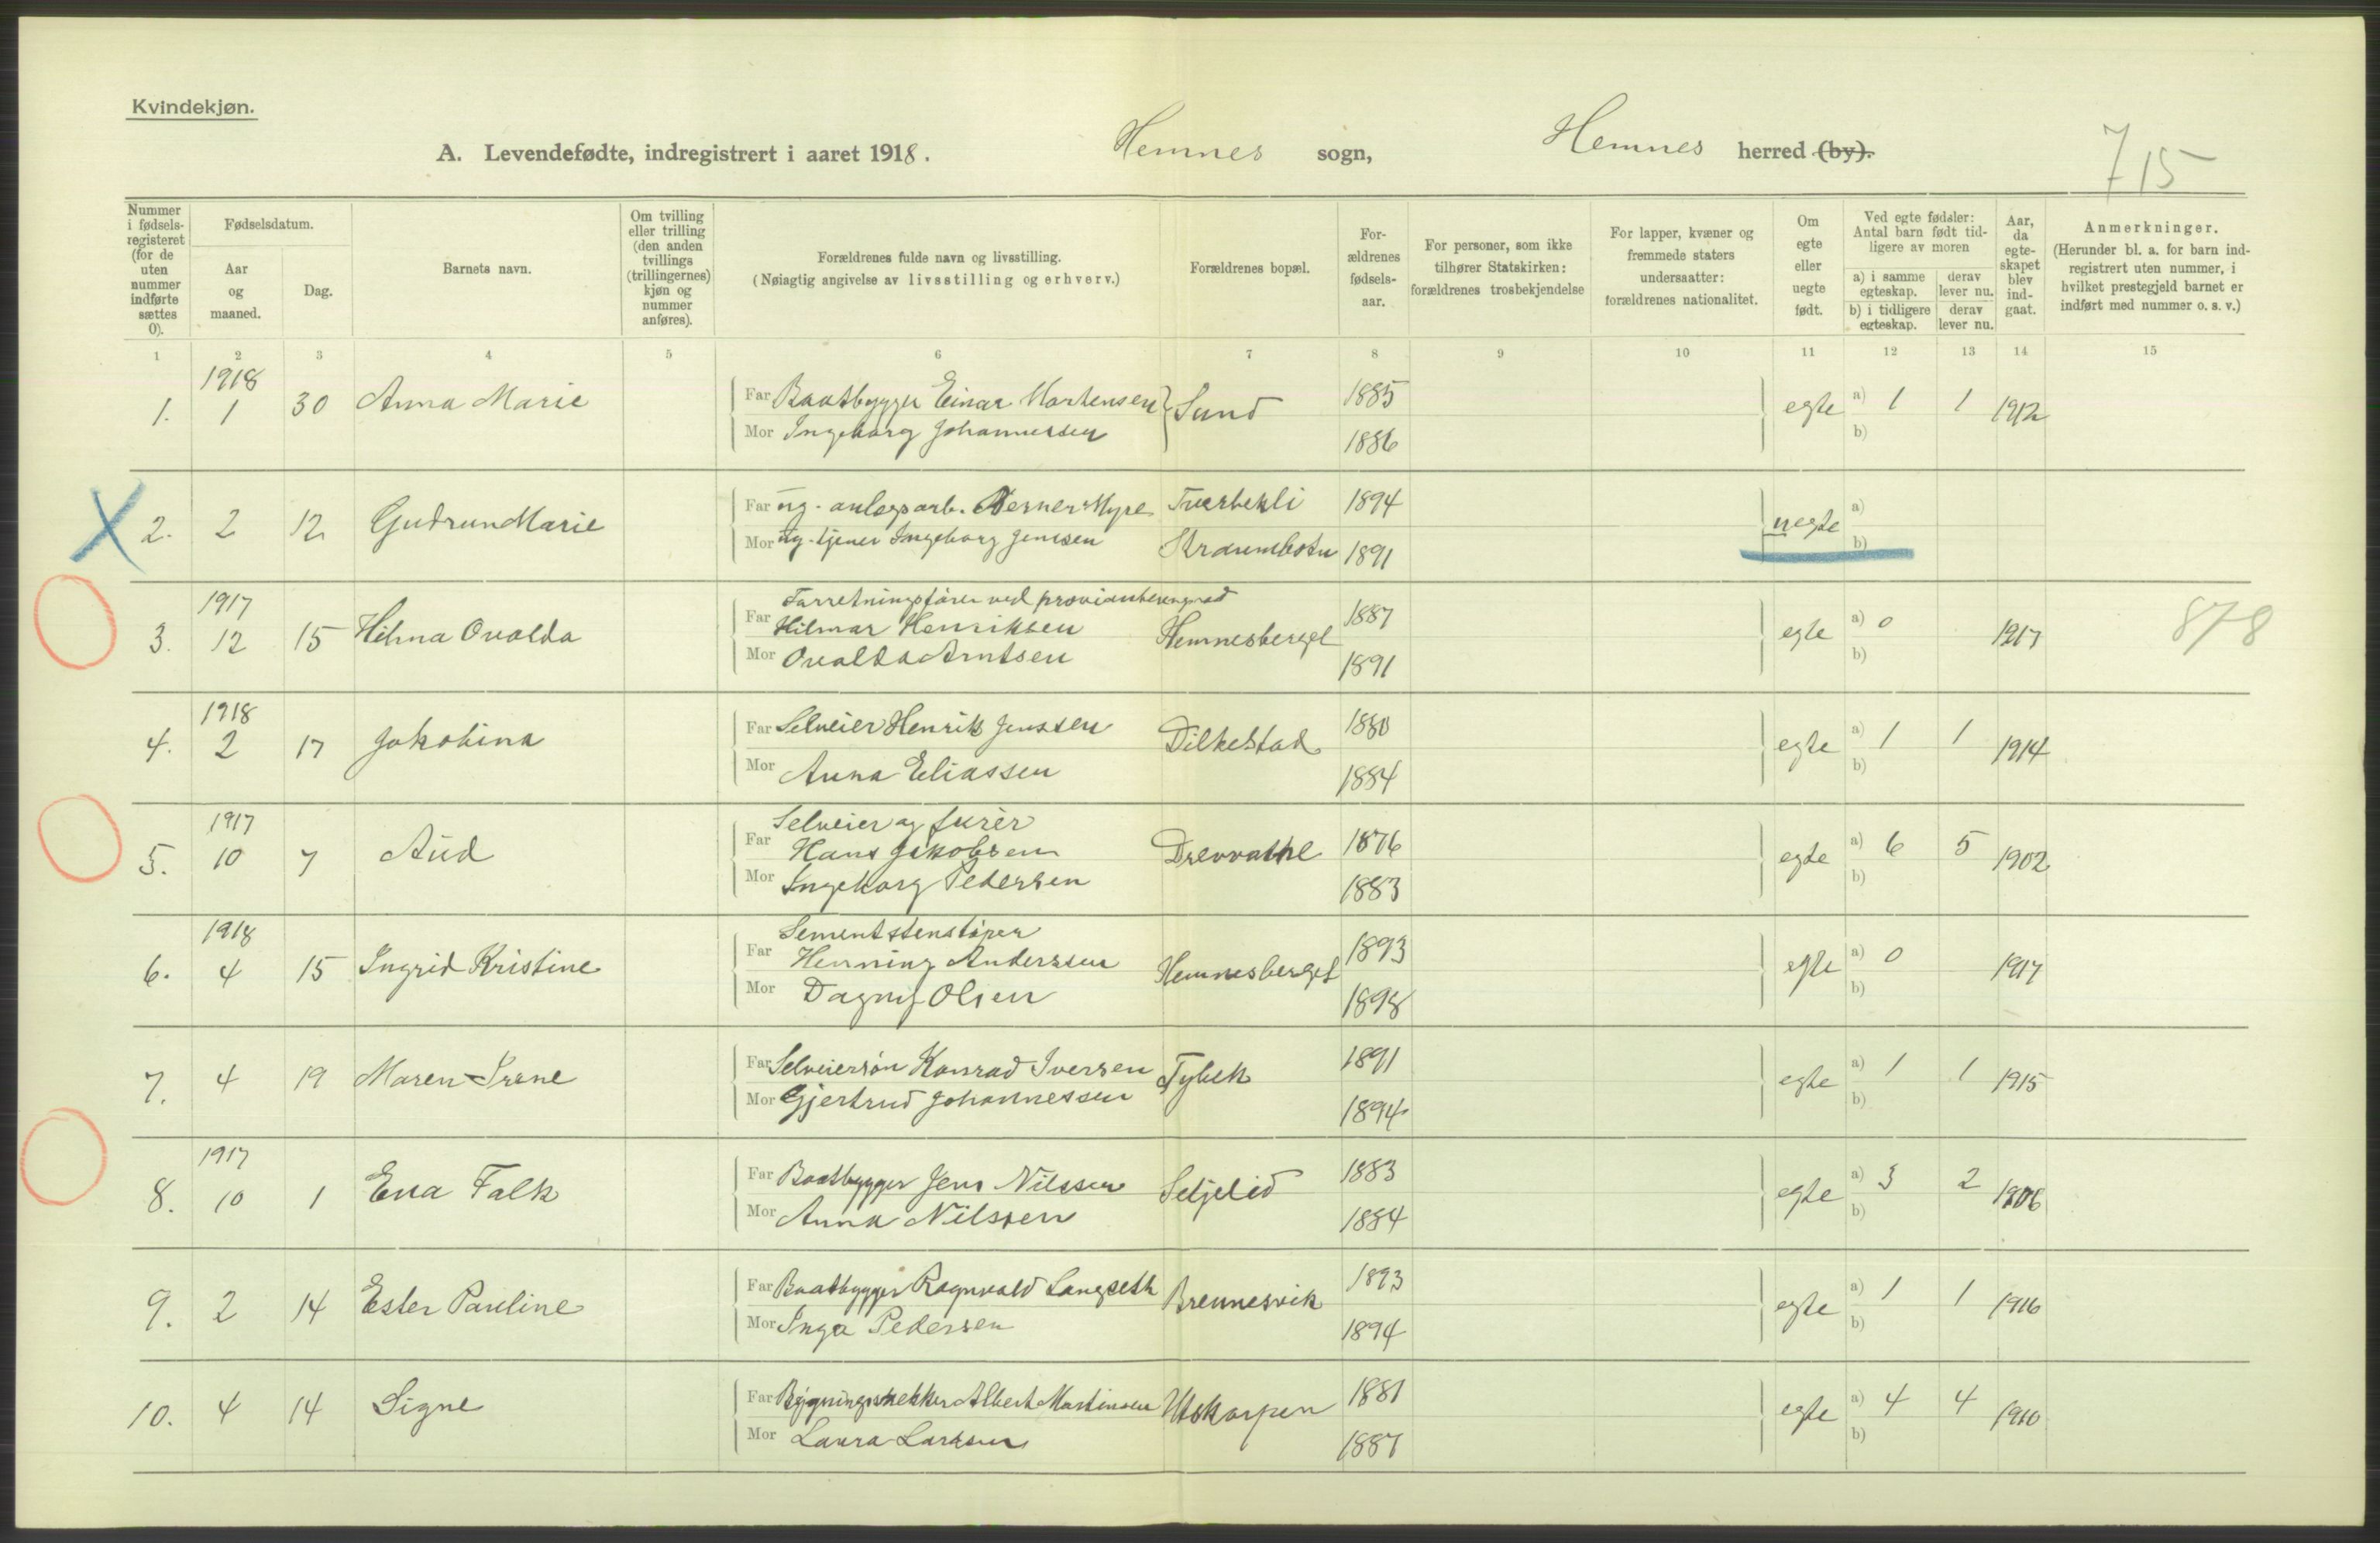 Kvindekjøn.
A. Levendefødte, indregistrert i aaret 1918. Hemnes sogn, Hemnes herred (by).
715
Nummer i fødselsregisteret (for de uten nummer indførte sættes 0).
Fødselsdatum.
Aar og maaned.
Dag.
Barnets navn.
Om tvilling eller trilling (den anden tvillings (trillingernes) kjøn og nummer anføres).
Forældrenes fulde navn og livsstilling.
(Nøiagtig angivelse av livsstilling og erhverv.)
Forældrenes bopæl.
Forældrenes fødselsaar.
For personer, som ikke tilhører Statskirken: forældrenes trosbekjendelse
For lapper, kvæner og fremmede staters undersaatter: forældrenes nationalitet.
Om egte eller uegte født.
Ved egte fødsler: Antal barn født tidligere av moren
a) i samme egteskap. derav lever nu.
b) i tidligere egteskap. derav lever nu.
Aar, da egteskapet blev indgaat.
Anmerkninger.
(Herunder bl. a. for barn indregistrert uten nummer, i hvilket prestegjeld barnet er indført med nummer o. s. v.)
1 2 3 4 5 6 7 8 9 10 11 12 13 14 15
1918
1. 1 30 Anna Marie Far Baatbygger Einar Martensen Sund 1885 egte a) 1 1 1912
Mor Ingeborg Johannessen 1886 b)
2. 2 12 Gudrun Marie Far ug. anlægsarb. Verner Myre Tverbekli 1894 uegte a)
Mor ug. tjener Ingeborg Jenssen Straumbotn 1891 b)
1917
Forretningsfører ved
3. 12 15 Hilma Ovalda Far Hilmar Henriksen Hemnesberget 1887 egte a) 0 1917 878
Mor Ovalda Arntsen 1891 b)
1918
4. 2 17 Jakobina Far Selveier Henrik Jenssen Dilkestad 1880 egte a) 1 1 1914
Mor Anna Eliassen 1884 b)
1917
Selveier og furér
5. 10 7 Aud Far Hans Jakobsen Drevvatne 1876 egte a) 6 5 1902
Mor Ingeborg Pedersen 1883 b)
1918
Sementstenstøper
6. 4 15 Ingrid Kristine Far Henning Anderssen Hemnesberget 1893 egte a) 0 1917
Mor Dagny Olsen 1898 b)
7. 4 19 Maren Irene Far Selveiersøn Konrad Iversen Tybek 1891 egte a) 1 1 1915
Mor Gjertrud Johannessen 1894 b)
1917
8. 10 1 Ena Falk Far Baatbygger Jens Nilssen Seljelid 1883 egte a) 3 2 1906
Mor Anna Nilssen 1884 b)
9. 2 14 Ester Pauline Far Baatbygger Ragnvald Langseth Brennesvik 1893 egte a) 1 1 1916
Mor Inga Pedersen 1894 b)
10. 4 14 Signe Far Bygningssnekker Albert Martinsen Utskarpen 1881 egte a) 4 4 1910
Mor Laura Larssen 1887 b)